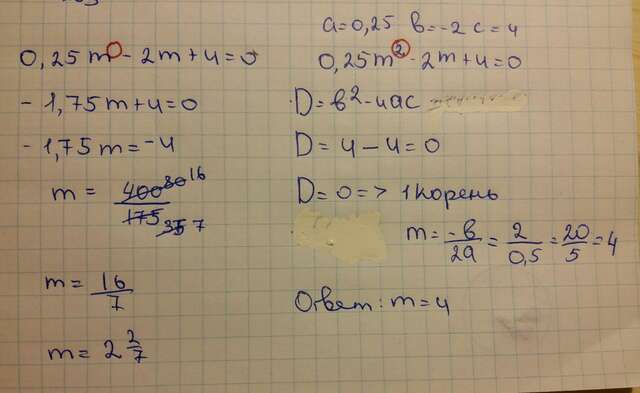 0,25m - 2m+4=0
- 1,75m+4=0
- 1,75m=-4
m = 400 80 16 / 175 35 7
m = 16/7
m = 2 2/7
a=0,25 в=-2 c=4
0,25m² - 2m+4=0
D=в²-4ac
D=4-4=0
D=0=> 1корень
m=-в/2a=2/0,5=20/5=4
Ответ: m=4